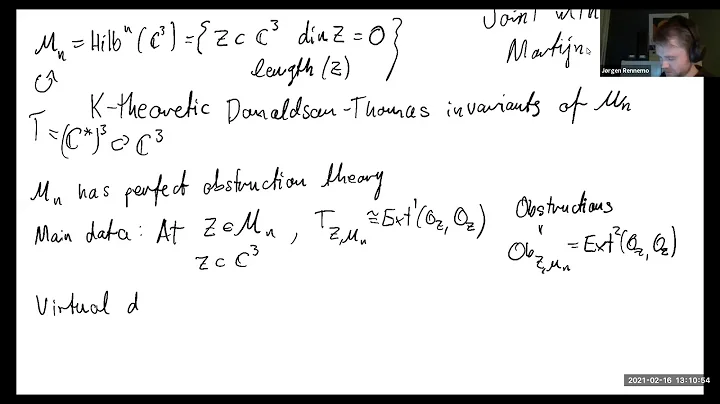 Mₙ = Hilbⁿ(ℂ³) = { Z ⊂ ℂ³ dim Z = 0 }
length(Z)
Joint with
Martijn
Jørgen Rennemo
K-theoretic Donaldson-Thomas invariants of Mₙ
T = (ℂ*)³ ↻ ℂ³
Mₙ has perfect obstruction theory
Main data: At Z ∈ Mₙ, T_{Z,Mₙ} ≅ Ext¹(O_Z, O_Z)
Z ⊂ ℂ³
Obstructions
Ob_{Z,Mₙ} = Ext²(O_Z, O_Z)
Virtual d
2021-02-16 13:10:54